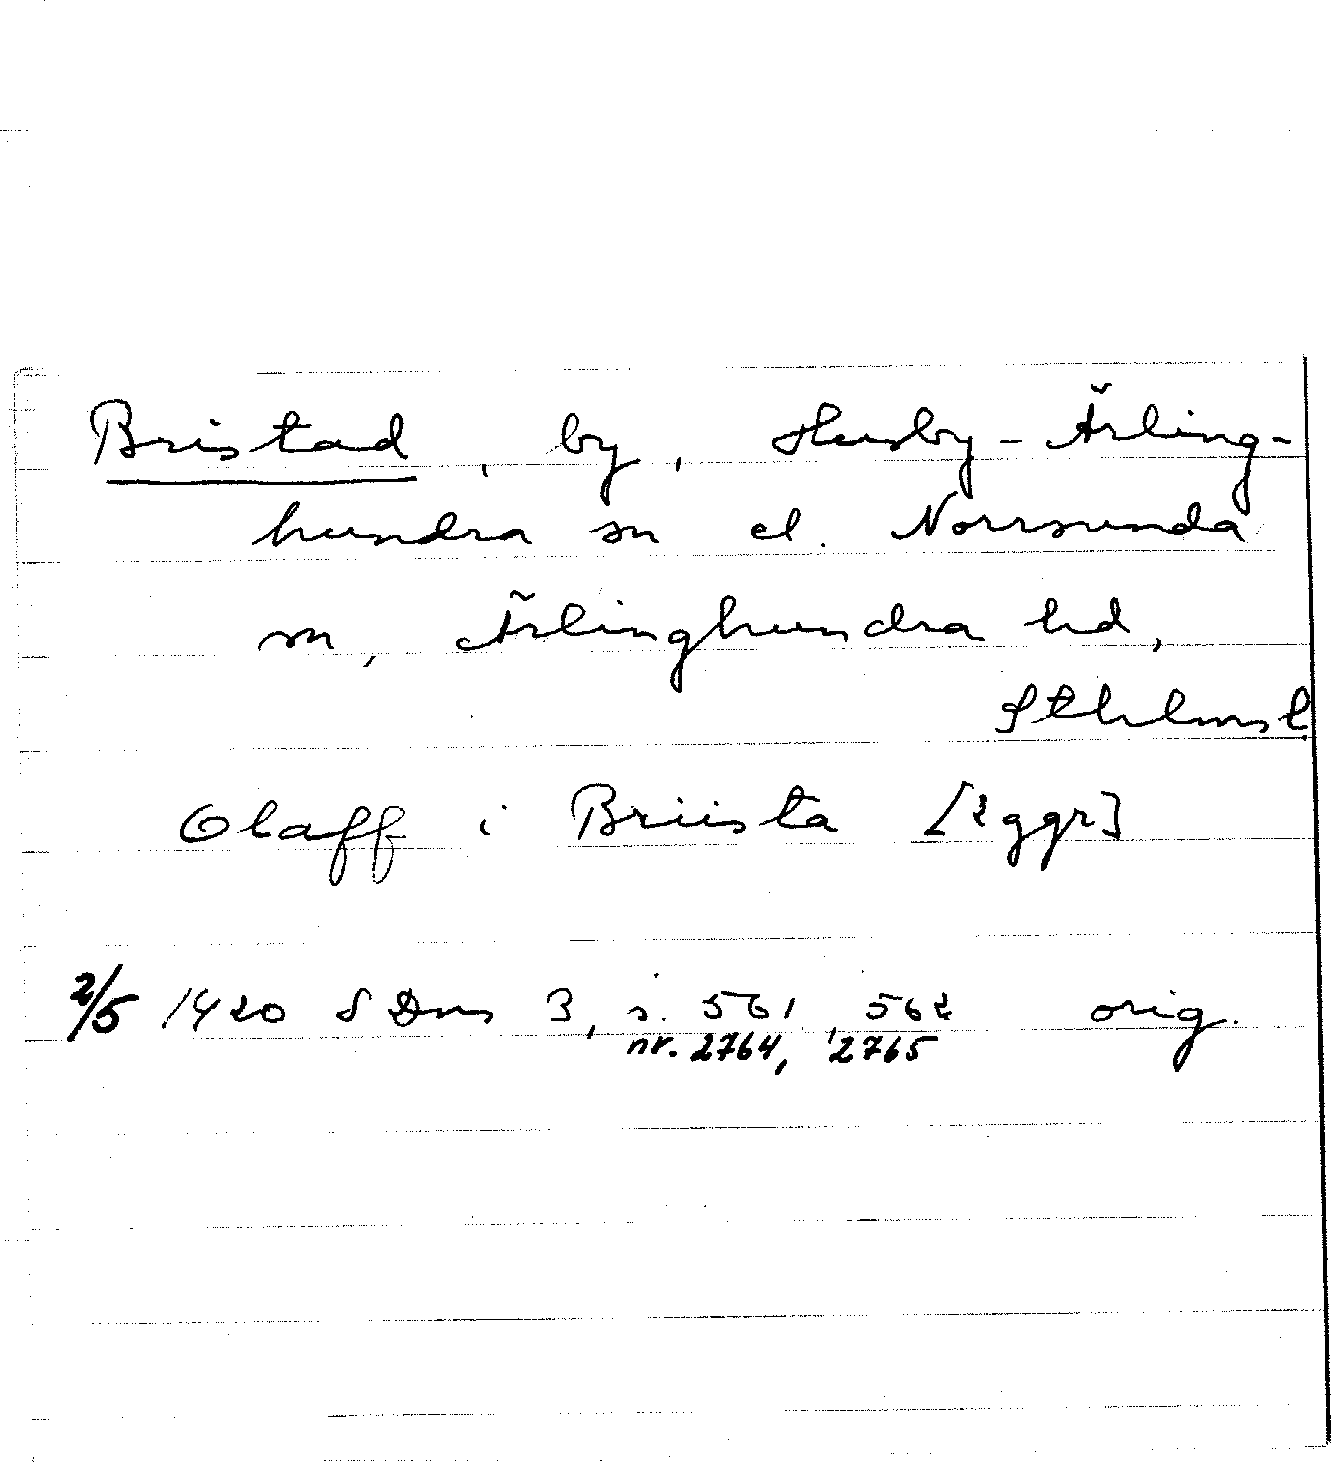 Bristad, by, Husby-Ärling-
hundra sn el. Norrsunda
sn, Ärlinghundra hd,
Sthlms l.
Olaff i Briista [2 ggr]
2/5 1420 SDns 3, s. 561, 562 orig.
nr. 2764, 2765